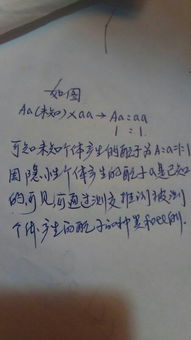 如图
Aa(未知)×aa→Aa:aa
1:1
可知未知个体产生的配子为A:a=1:1
因隐性个体产生的配子a是已知
的,可见可通过测交推测被测
个体产生的配子的种类和比例.